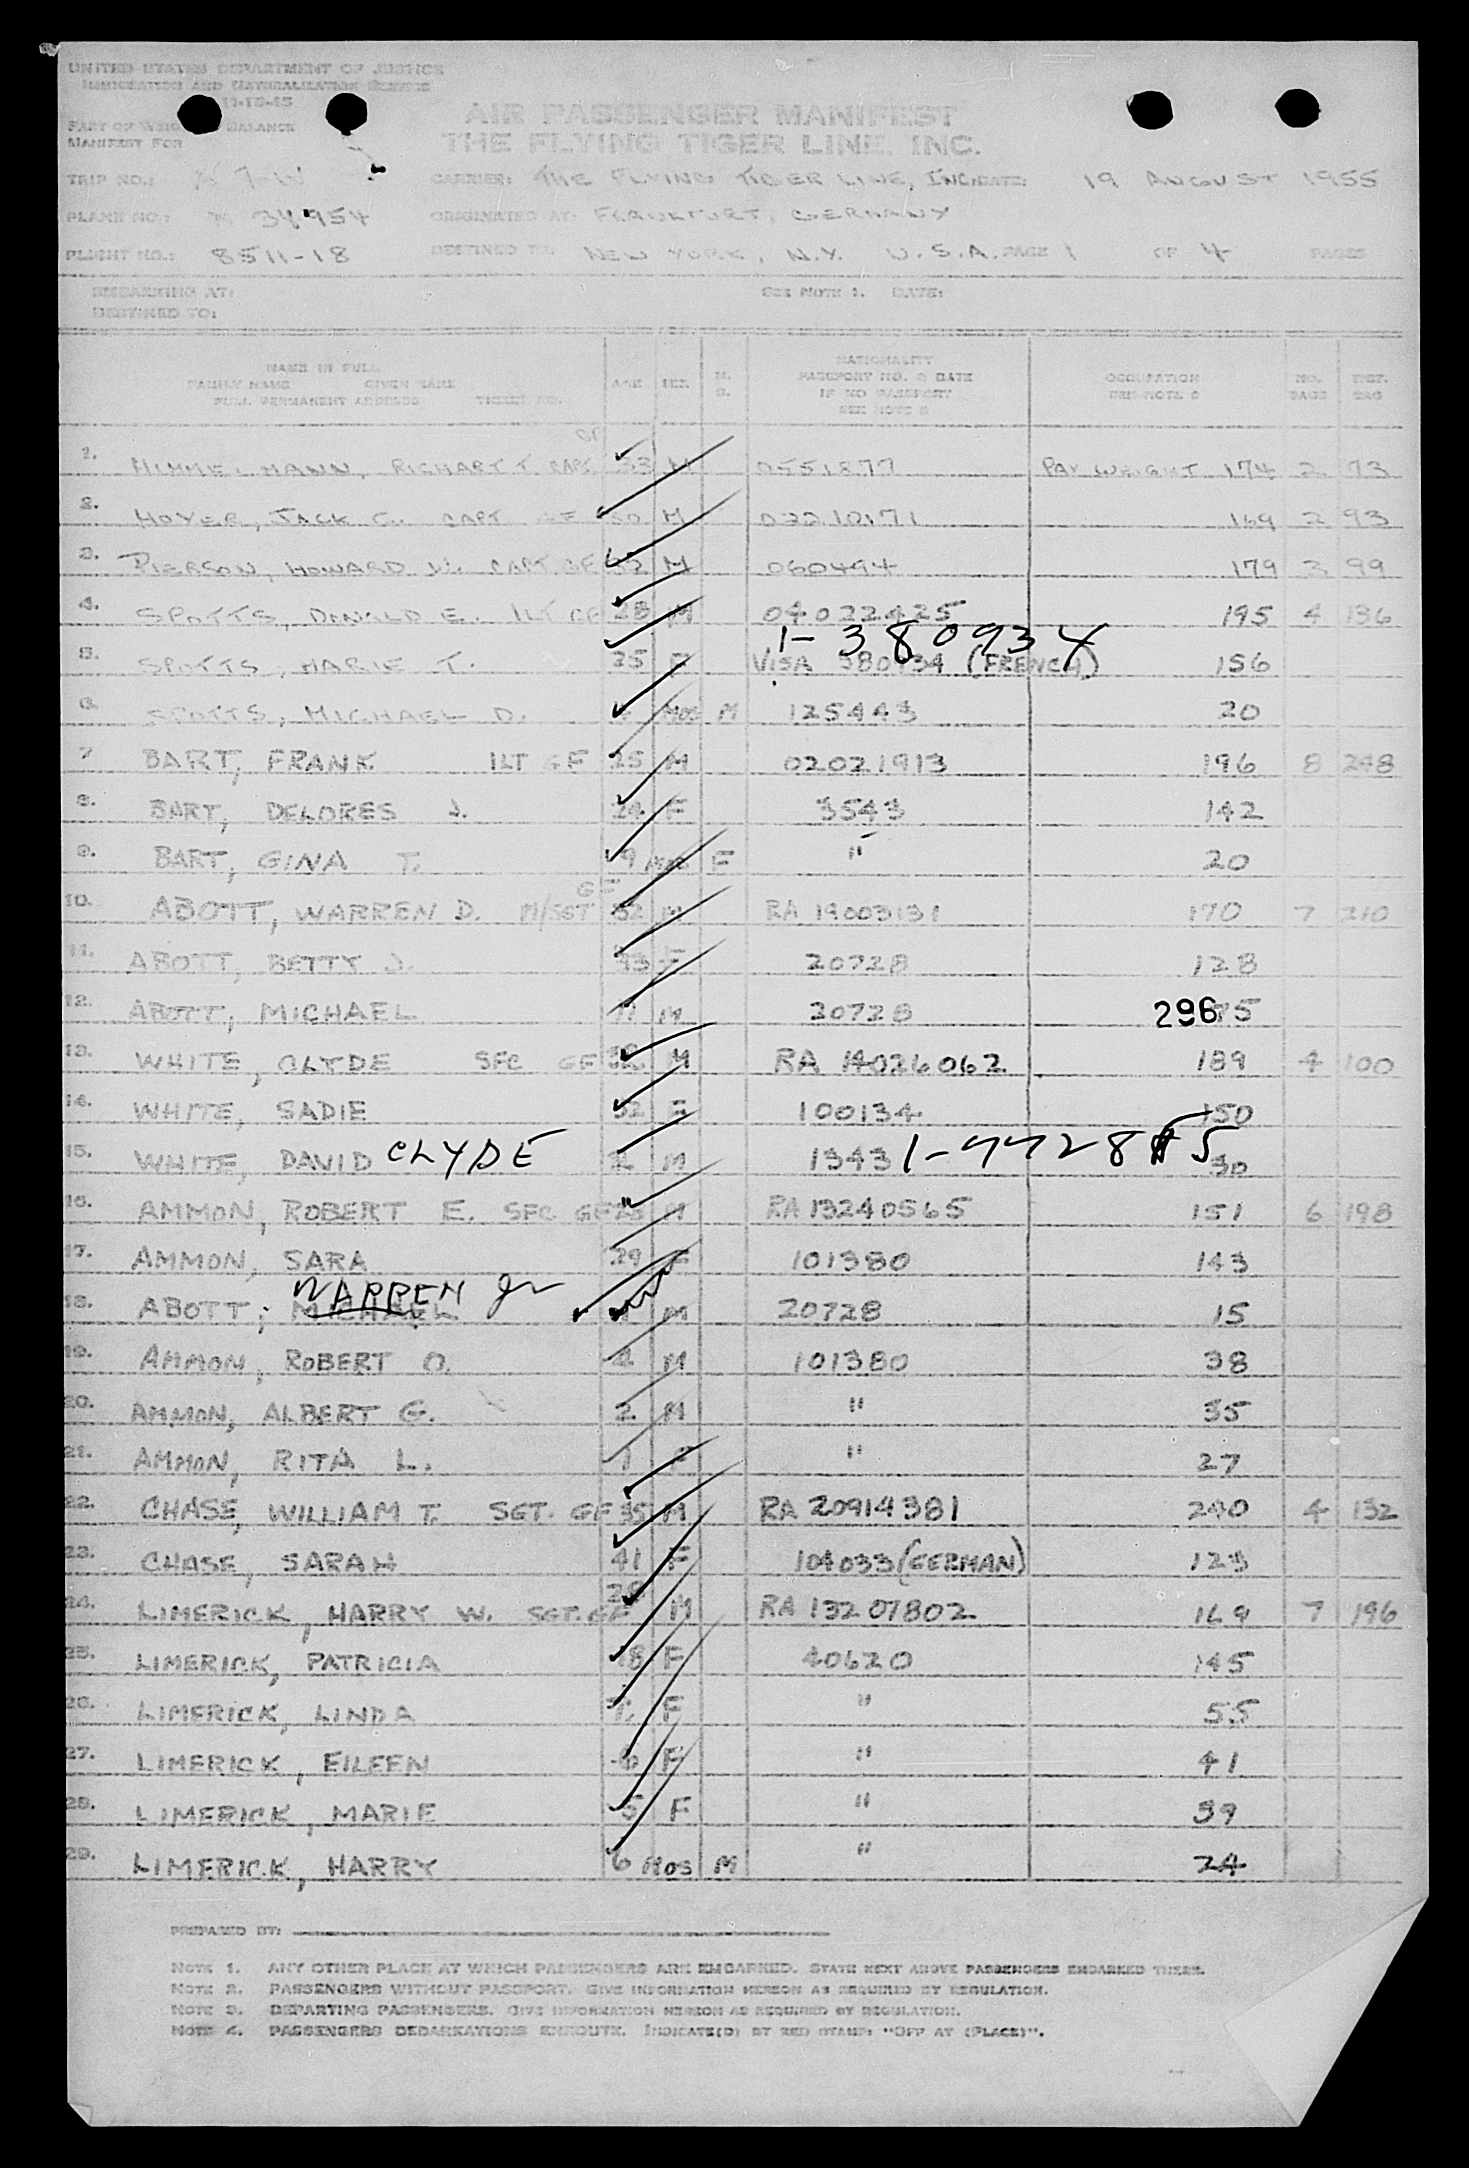 UNITED STATES DEPARTMENT OF JUSTICE
IMMIGRATION AND NATURALIZATION SERVICE
11-15-45
PART OF WEIGHT BALANCE
MANIFEST FOR
AIR PASSENGER MANIFEST
THE FLYING TIGER LINE, INC.
TRIP NO.: CARRIER: THE FLYING TIGER LINE, INC. DATE: 19 AUGUST 1955
PLANE NO.: N 34954 ORIGINATED AT: FRANKFURT, GERMANY
FLIGHT NO.: 8511-18 DESTINED TO: NEW YORK, N.Y. U.S.A. PAGE 1 OF 4 PAGES
EMBARKING AT: SEE NOTE 1. DATE:
DESTINED TO:
NAME IN FULL
FAMILY NAME GIVEN NAME
FULL PERMANENT ADDRESS TICKET NO.
AGE SEX M. S.
NATIONALITY
PASSPORT NO. & DATE
IF NO PASSPORT
SEE NOTE 2
OCCUPATION
SEE NOTE 2
NO. BAGS WGT. BAG
1. HIMMELMANN, RICHART T. CAPT. GF 33 M 0551877 PAX WEIGHT 174 2 73
2. HOYER, JACK C. CAPT GF 30 M 02210171 169 2 93
3. PIERSON, HOWARD W. CAPT. GF 32 M 060494 179 2 99
4. SPOTTS, DONALD E. 1LT GF 28 M 04022425 195 4 136
1-380934
5. SPOTTS, MARIE T. 25 F VISA 380934 (FRENCH) 156
6. SPOTTS, MICHAEL D. MOS M 125443 20
7 BART, FRANK 1LT GF 25 M 02021913 196 8 248
8. BART, DELORES J. 24 F 3543 142
9. BART, GINA T. 9 MOS F " 20
10. ABOTT, WARREN D. M/SGT GF 32 M RA 19003131 170 7 210
11. ABOTT, BETTY J. 33 F 20728 128
12. ABOTT, MICHAEL 11 M 20728 29675
13. WHITE, CLYDE SFC GF 38 M RA 14026062 189 4 100
14. WHITE, SADIE 32 F 100134 150
15. WHITE, DAVID CLYDE M 1343 1-442885 30
16. AMMON, ROBERT E. SFC GF M RA 13240565 151 6 198
17. AMMON, SARA 29 F 101380 143
WARREN Jr
18. ABOTT, MICHAEL M 20728 15
19. AMMON, ROBERT O. 4 M 101380 38
20. AMMON, ALBERT G. 2 M " 35
21. AMMON, RITA L. 1 F " 27
22. CHASE, WILLIAM T. SGT. GF 35 M RA 20914381 240 4 132
23. CHASE, SARAH 41 F 104033 (GERMAN) 123
24. LIMERICK, HARRY W. SGT. GF 28 M RA 13207802 169 7 196
25. LIMERICK, PATRICIA 18 F 40620 145
26. LIMERICK, LINDA 7 F " 55
27. LIMERICK, EILEEN F " 41
28. LIMERICK, MARIE 5 F " 39
29. LIMERICK, HARRY 6 MOS M " 24
PREPARED BY:
NOTE 1. ANY OTHER PLACE AT WHICH PASSENGERS ARE EMBARKED. STATE NEXT ABOVE PASSENGERS EMBARKED THERE.
NOTE 2. PASSENGERS WITHOUT PASSPORT. GIVE INFORMATION HEREON AS REQUIRED BY REGULATION.
NOTE 3. DEPARTING PASSENGERS. GIVE INFORMATION HEREON AS REQUIRED BY REGULATION.
NOTE 4. PASSENGERS DEBARKATIONS ENROUTE. INDICATE(D) BY RED STAMP: "OFF AT (PLACE)".